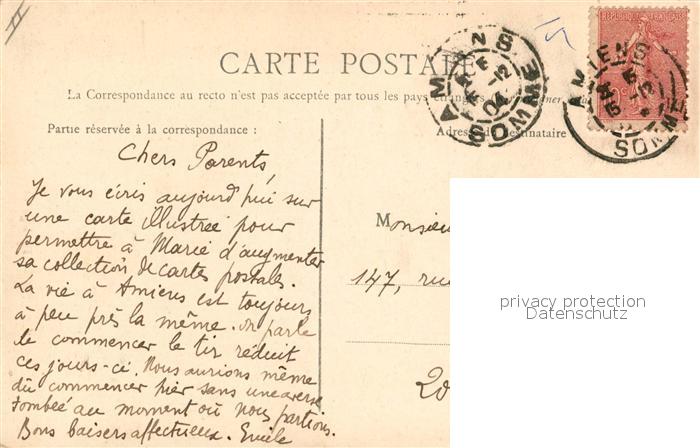 CARTE POSTALE
La Correspondance au recto n'est pas acceptée par tous les pays étrangers
Partie réservée à la correspondance :
Adresse du destinataire
Chers Parents,
Je vous écris aujourd'hui sur
une carte illustrée pour
permettre à Marie d'augmenter
sa collection de cartes postales.
La vie à Amiens est toujours
à peu près la même. On parle
de commencer le tir réduit
ces jours-ci. Nous aurions même
dû commencer hier sans une averse
tombée au moment où nous partions.
Bons baisers affectueux. Emile
Monsieur
147, rue
20
AMIENS
SOMME
12
04
AMIENS
SOMME
privacy protection
Datenschutz